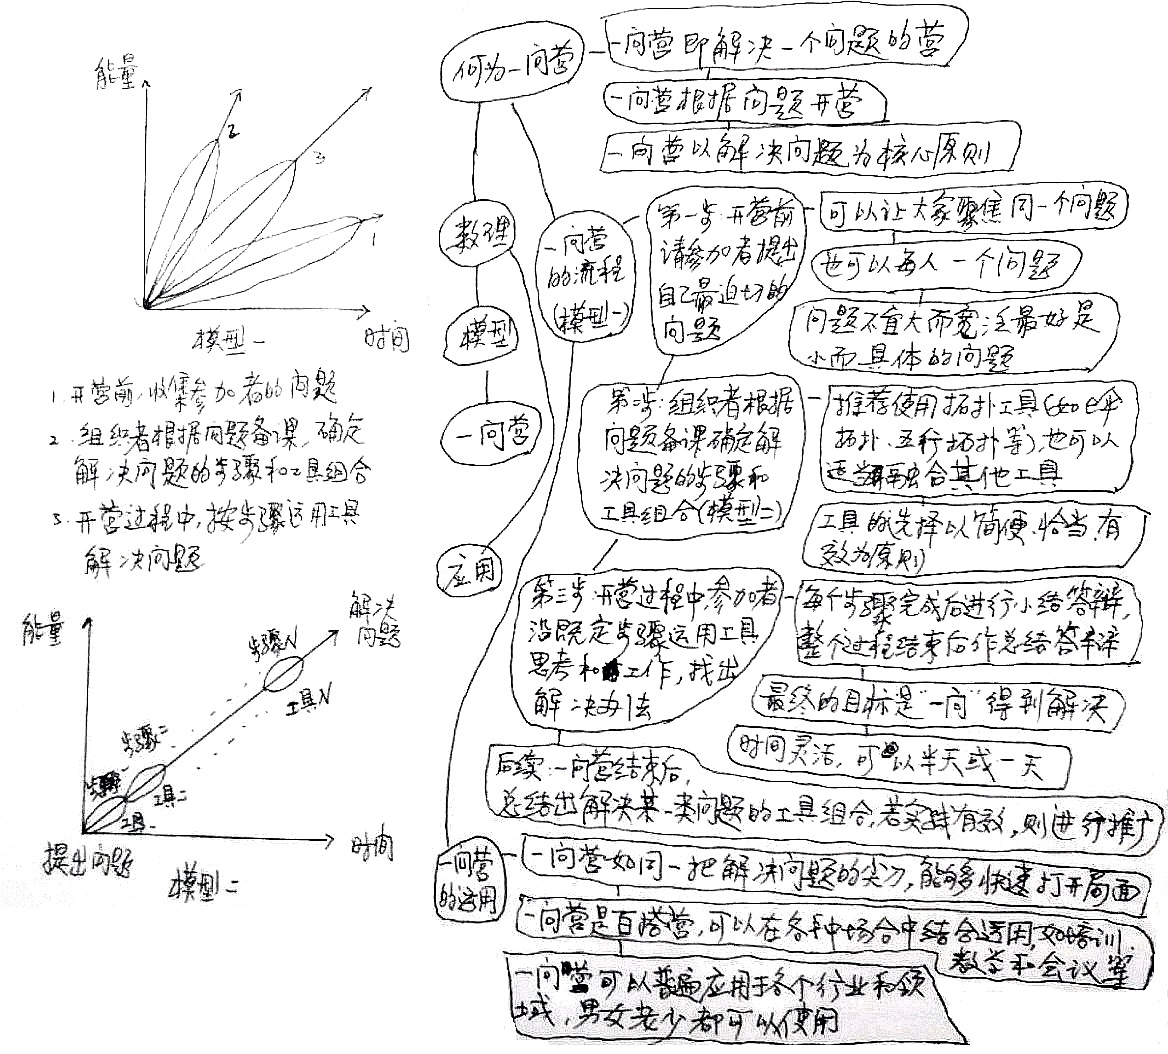 能量
2
3
1
模型一
时间
1. 开营前,收集参加者的问题
2. 组织者根据问题备课,确定
解决问题的步骤和工具组合
3. 开营过程中,按步骤运用工具
解决问题
能量
解决
问题
步骤N
工具N
步骤二
工具二
步骤一
工具一
提出问题
时间
模型二
何为一问营
一问营即解决一个问题的营
一问营根据问题开营
一问营以解决问题为核心原则
数理
模型
一问营
应用
一问营
的流程
(模型一)
第一步:开营前
请参加者提出
自己最迫切的
问题
可以让大家聚焦同一个问题
也可以每人一个问题
问题不宜大而宽泛最好是
小而具体的问题
第二步:组织者根据
问题备课,确定解
决问题的步骤和
工具组合(模型二)
推荐使用拓扑工具(如伞
拓扑、五行拓扑等),也可以
适当融合其他工具
工具的选择以简便、恰当、有
效为原则
第三步:开营过程中,参加者
沿既定步骤运用工具
思考和工作,找出
解决办法
每个步骤完成后进行小结答辩,
整个过程结束后作总结答辩
最终的目标是“一问”得到解决
时间灵活,可以半天或一天
后续:一问营结束后,
总结出解决某一类问题的工具组合,若实践有效,则进行推广
一问营
的运用
一问营如同一把解决问题的尖刀,能够快速打开局面
一问营是百搭营,可以在各种场合中结合运用,如培训、
教学和会议等
一问营可以普遍应用于各个行业和领
域,男女老少都可以使用